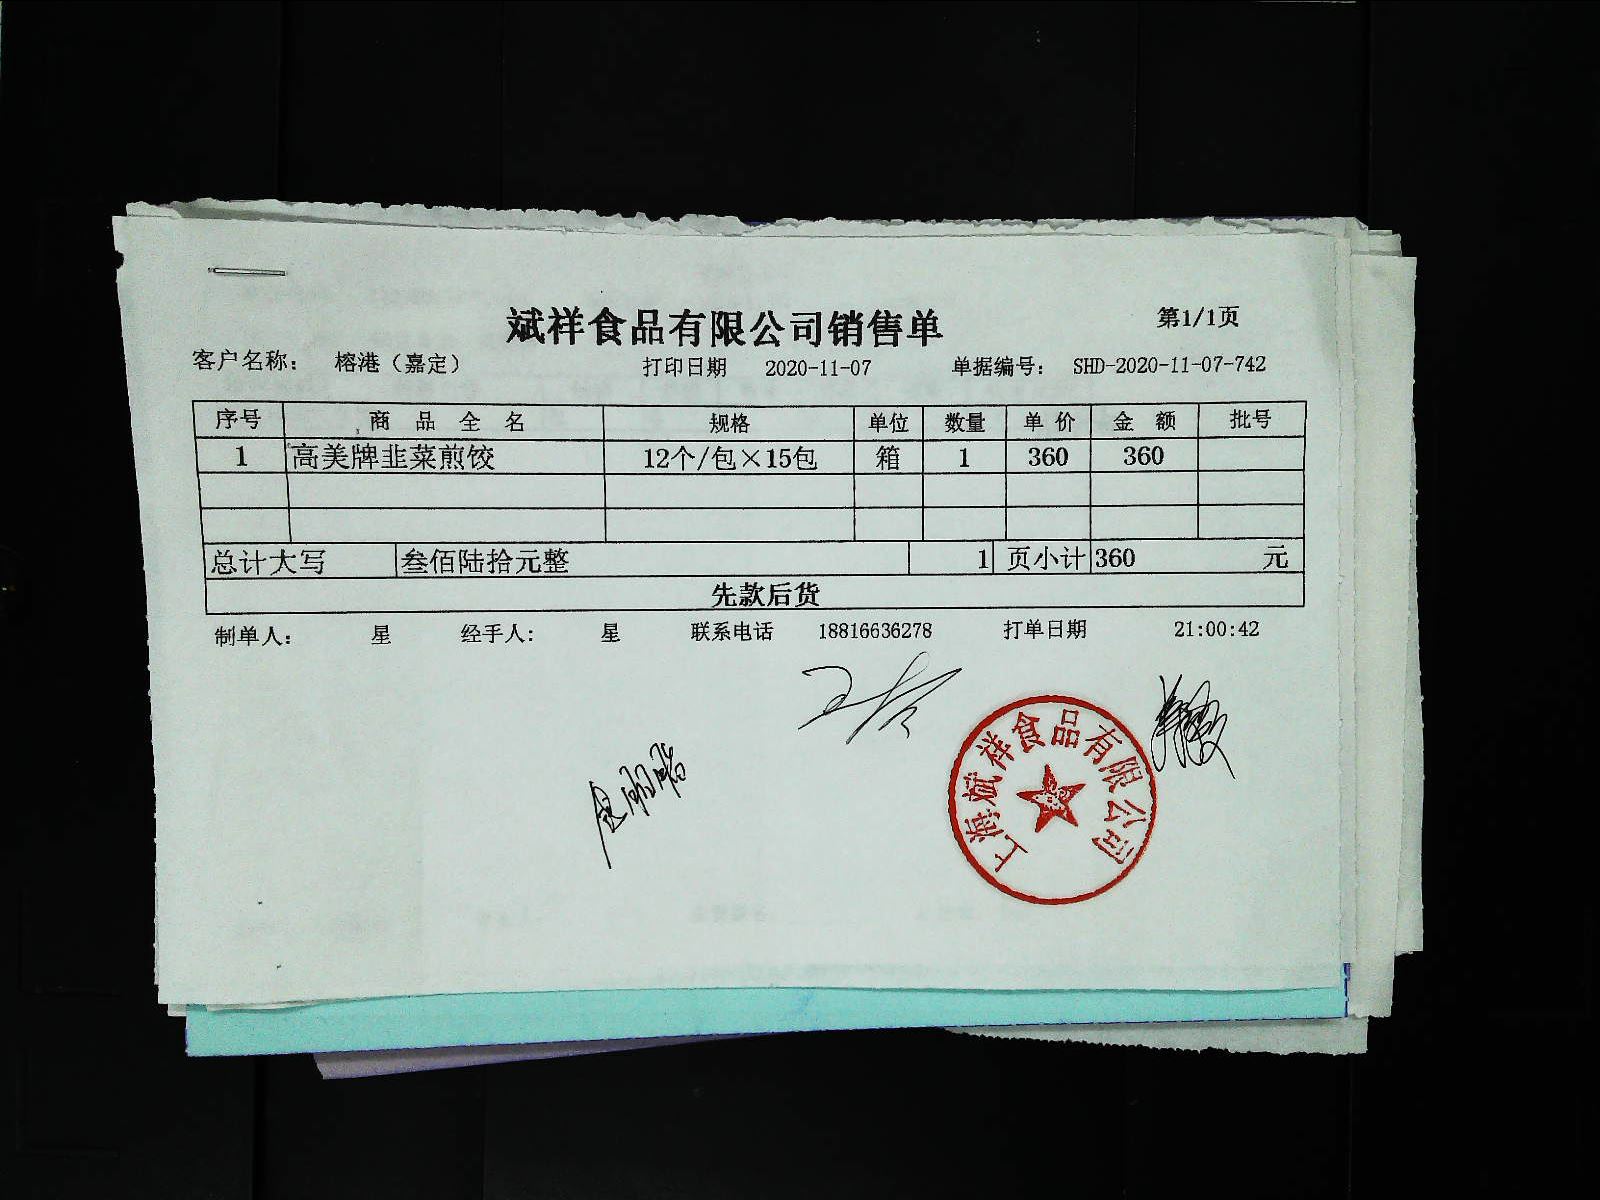 斌祥食品有限公司销售单
第1/1页
客户名称： 榕港（嘉定） 打印日期 2020-11-07 单据编号： SHD-2020-11-07-742
序号 商 品 全 名 规格 单位 数量 单 价 金 额 批号
1 高美牌韭菜煎饺 12个/包×15包 箱 1 360 360
总计大写 叁佰陆拾元整 1 页小计 360 元
先款后货
制单人： 星 经手人： 星 联系电话 18816636278 打单日期 21:00:42
上海斌祥食品有限公司